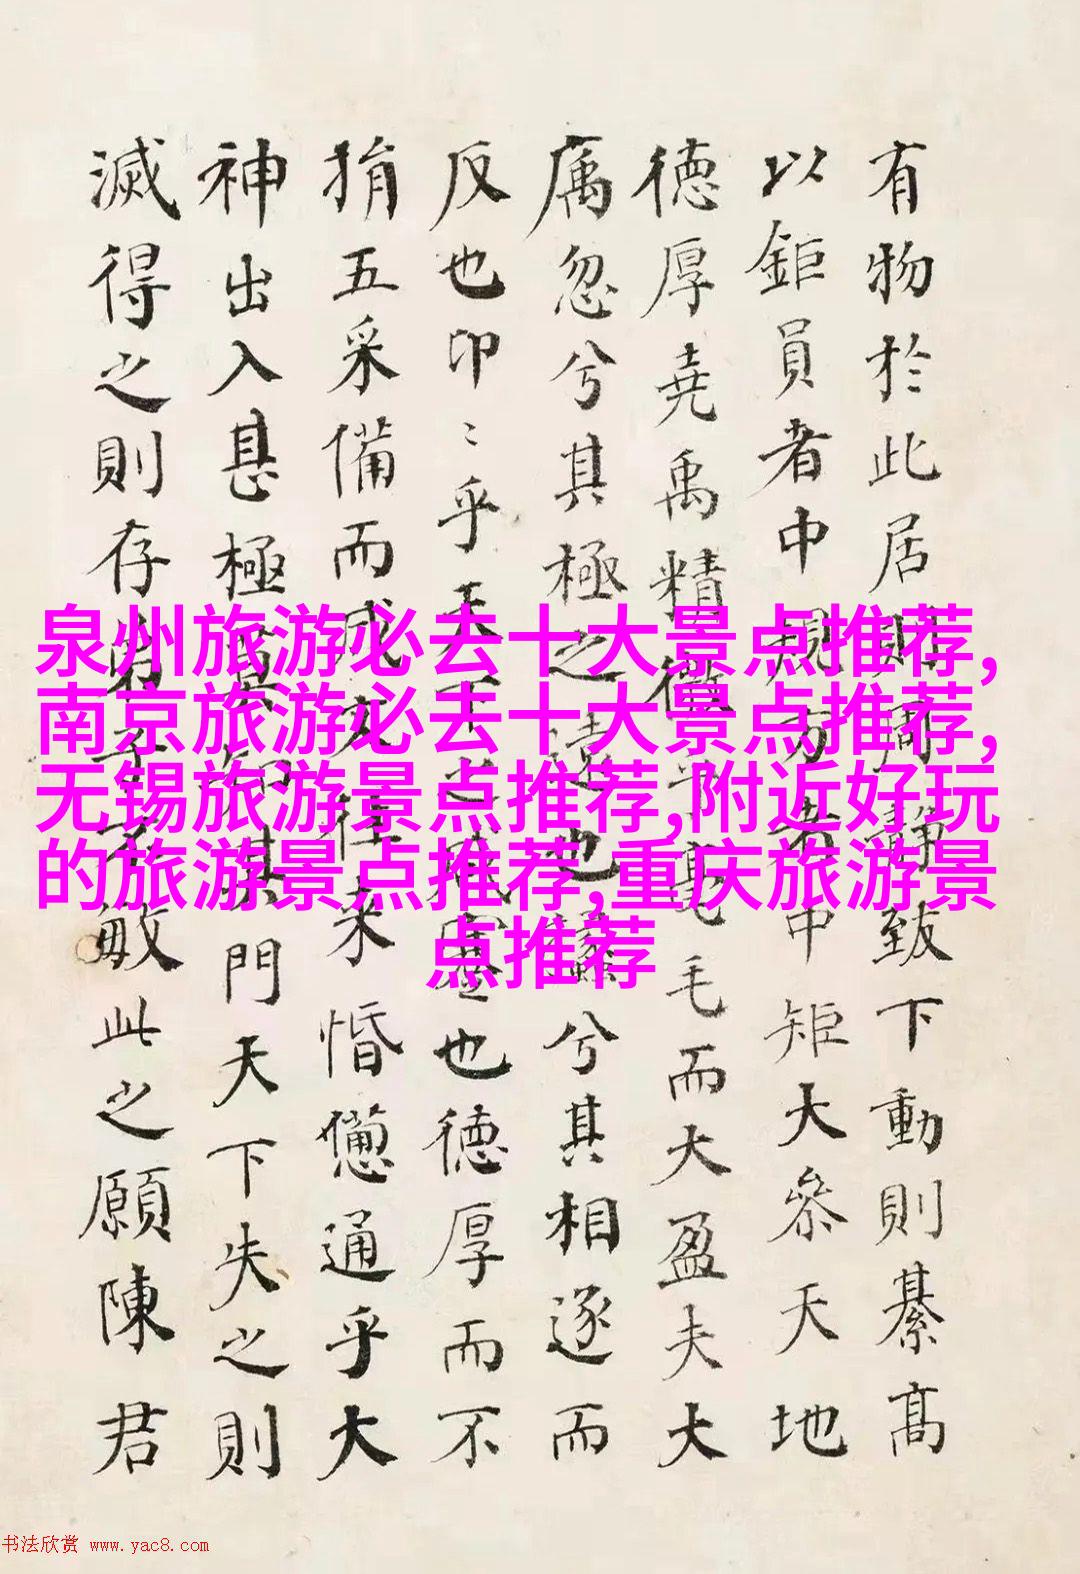 有物於此居則周靜致下動則綦高
以鉅員者中規方者中矩大參天地
德厚尭禹精微乎毫毛而大盈夫大
厲忽兮其極之遠也蠡兮其相逐而
反也卬〻乎天下之咸蹇也德厚而不
捐五采備而成文往来惛憊通乎大
神出入甚極莫知其門天下失之則
滅得之則存弟子不敏此之願陳君
泉州旅游必去十大景点推荐,
南京旅游必去十大景点推荐,
无锡旅游景点推荐,附近好玩
的旅游景点推荐,重庆旅游景
点推荐
书法欣赏 www.yac8.com